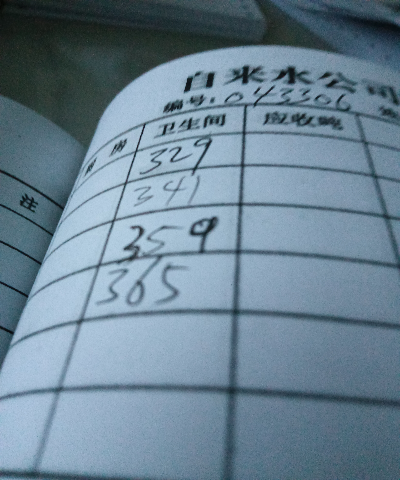 自来水公司
编号:043306
卫生间 应收吨
329
341
359
365
注